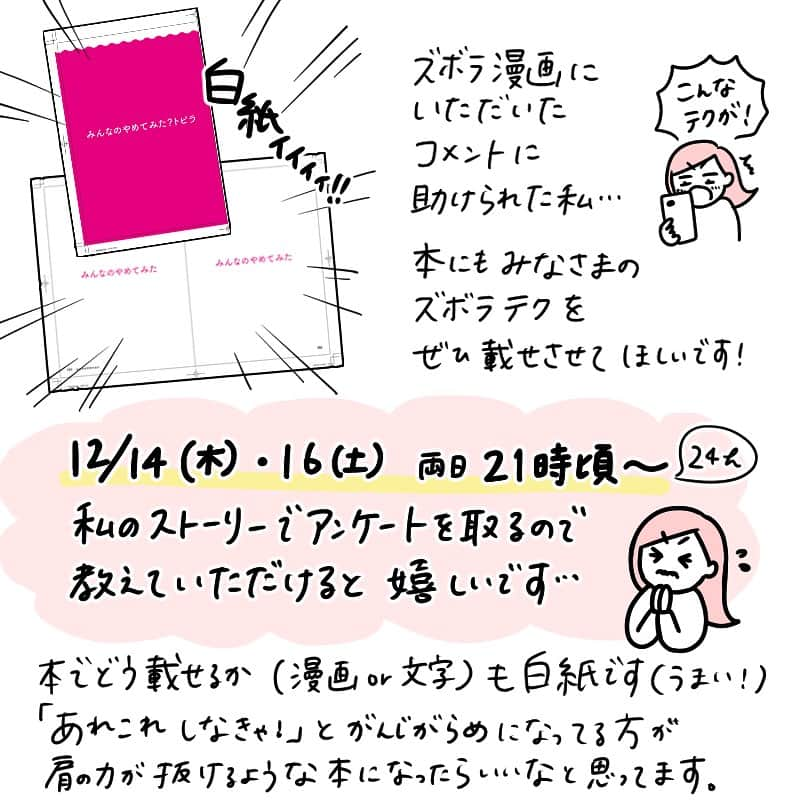 みんなのやめてみた?トビラ
白紙ィィィィ!!
みんなのやめてみた
みんなのやめてみた
ズボラ漫画に
いただいた
コメントに
助けられた私…
こんな
テクが!
本にもみなさまの
ズボラテクを
ぜひ載せさせてほしいです!
12/14(木)・16(土) 両日21時頃〜
24h
私のストーリーでアンケートを取るので
教えていただけると嬉しいです…
本でどう載せるか(漫画or文字)も白紙です(うまい!)
「あれこれしなきゃ!」とがんじがらめになってる方が
肩の力が抜けるような本になったらいいなと思ってます。